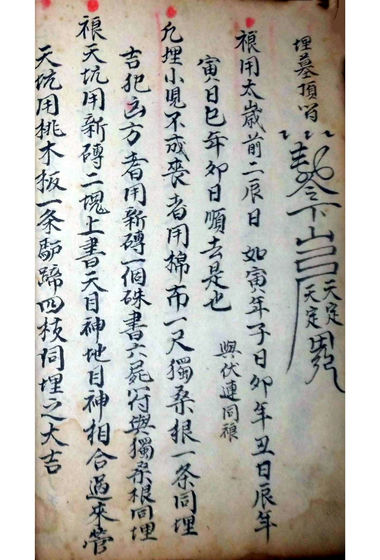 埋墓頂
天定
天定
禳用太歲前二辰日 如寅年子日卯年丑日辰年
寅日巳年卯日順去是也 與伏連同禳
凡埋小児不成喪者用棉布一尺獨桑根一条同埋
吉犯凶方者用新磚一個硃書六屍符與獨桑根同埋
禳天坑用新磚二塊上書天目神地目神相合過來營
天坑用桃木板一条馿蹄四枝同埋之大吉